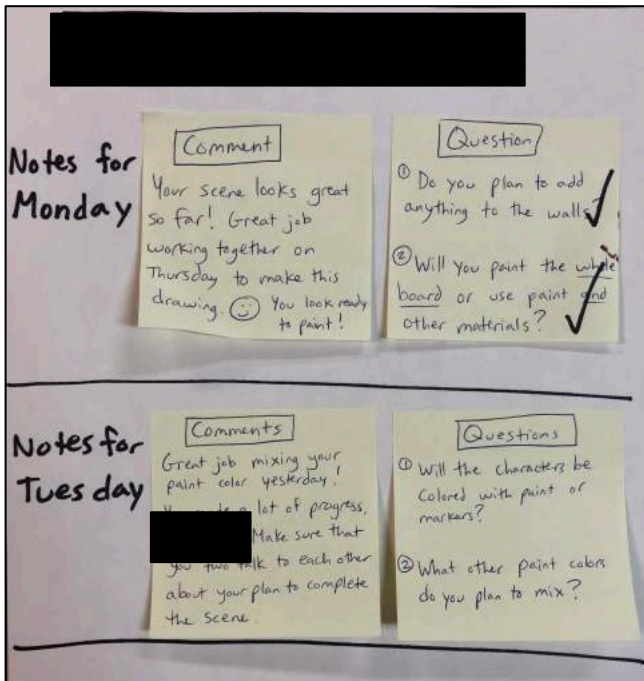 Notes for
Monday
Comment
Your scene looks great
so far! Great job
working together on
Thursday to make this
drawing. You look ready
to paint!
Question
① Do you plan to add
anything to the walls?
② Will you paint the whole
board or use paint and
other materials?
Notes for
Tuesday
Comments
Great job mixing your
paint color yesterday!
a lot of progress,
Make sure that
you two talk to each other
about your plan to complete
the scene.
Questions
① Will the characters be
colored with paint or
markers?
② What other paint colors
do you plan to mix?